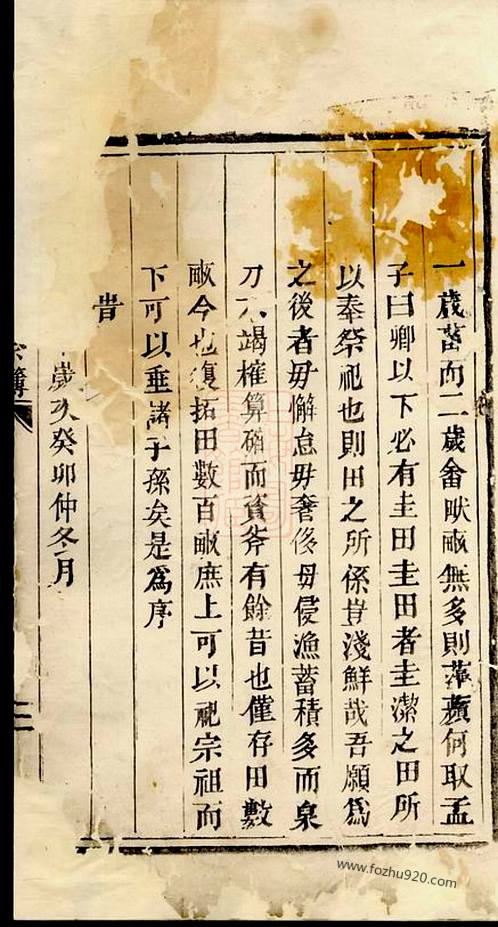 一歲菑而二歲畬畎畝無多則蘋蘩何取孟
子曰卿以下必有圭田圭田者圭潔之田所
以奉祭祀也則田之所係豈淺鮮哉吾願爲
之後者毋懈怠毋奢侈毋侵漁蓄積多而泉
刀不竭榷算確而資斧有餘昔也僅存田數
畝今也復拓田數百畝庶上可以祀宗祖而
下可以垂諸子孫矣是爲序
旹
歲次癸卯仲冬月
宗簿
二
www.fozhu920.com